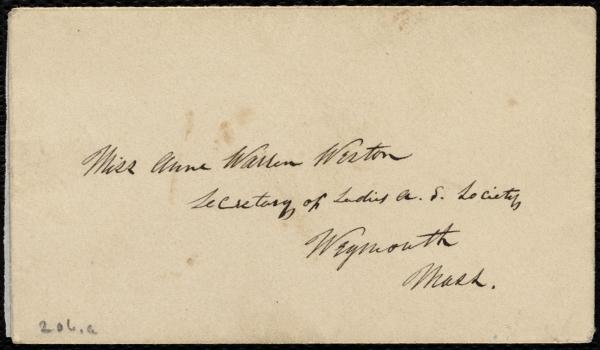 Miss Anne Warren Weston
Secretary of Ladies A. S. Society
Weymouth
Mass.
206.a